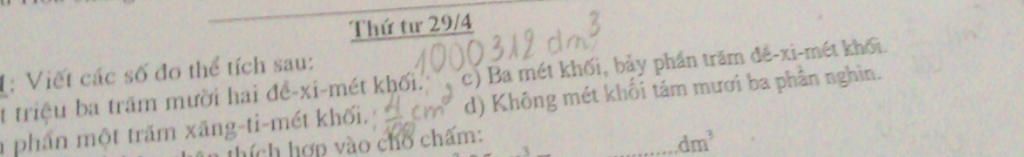 Thứ tư 29/4
1: Viết các số đo thể tích sau:
1000312 dm³
t triệu ba trăm mười hai đề-xi-mét khối. c) Ba mét khối, bảy phần trăm đề-xi-mét khối.
phần một trăm xăng-ti-mét khối. cm³ d) Không mét khối tám mươi ba phần nghìn.
thích hợp vào chỗ chấm:
dm³